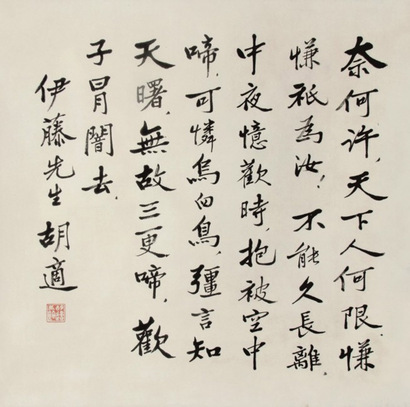 奈何許，天下人何限，慊
慊祇為汝，不能久長離，
中夜憶歡時，抱被空中
啼，可憐烏臼鳥，彊言知
天曙，無故三更啼，歡
子冒闇去，
伊藤先生 胡適